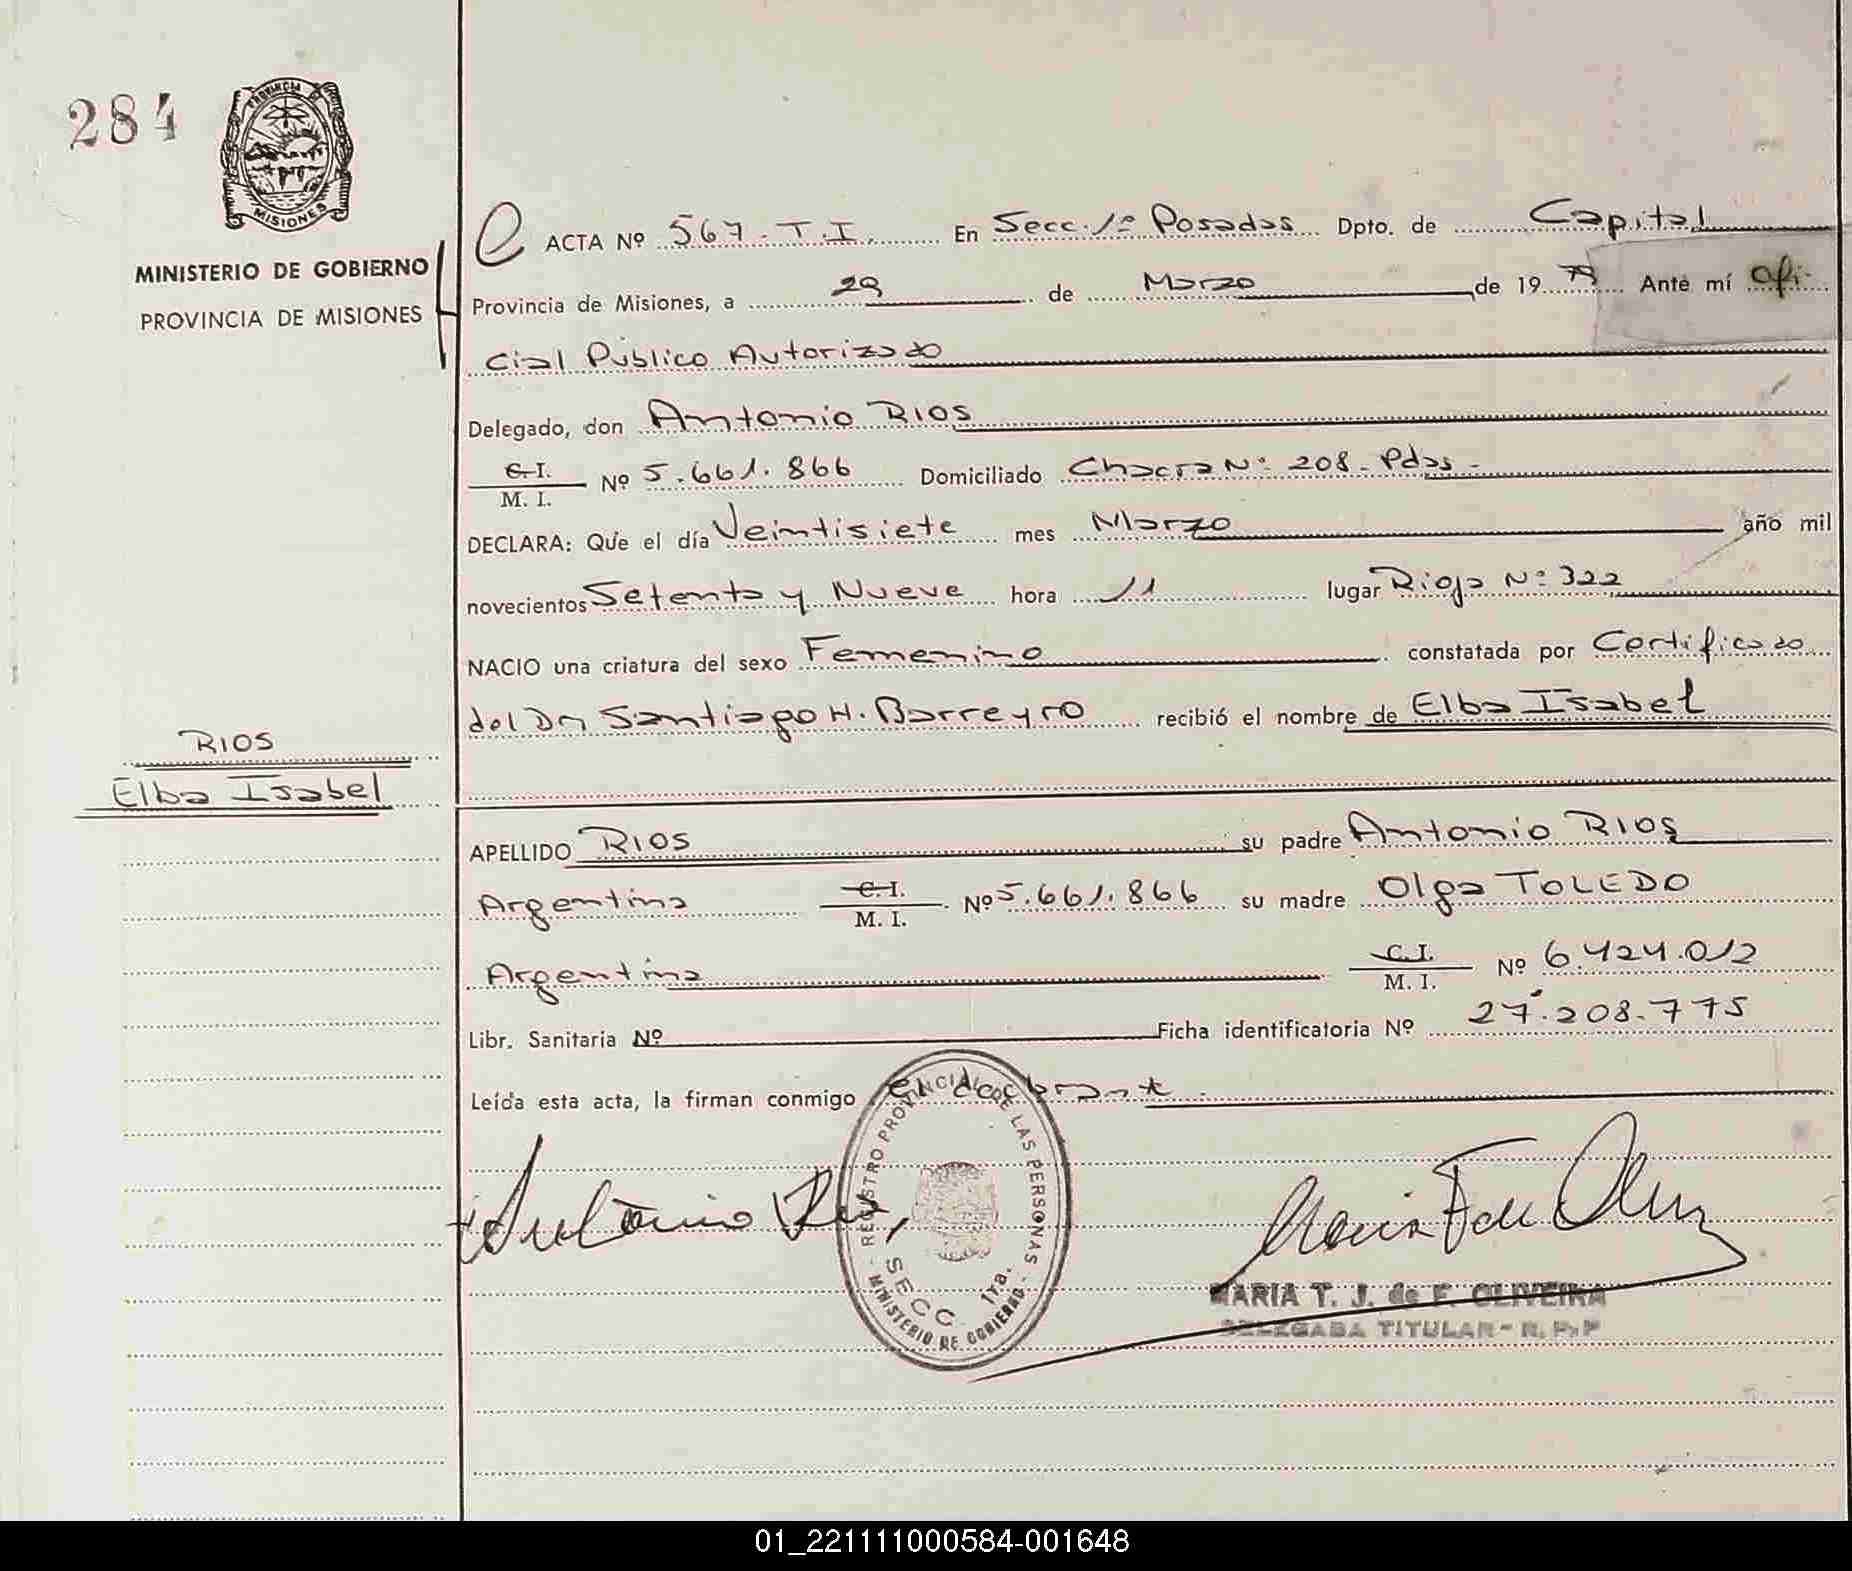 284
PROVINCIA DE
MISIONES
MINISTERIO DE GOBIERNO
PROVINCIA DE MISIONES
ACTA Nº 567. T. I. En Secc. 1ª Posadas Dpto. de Capital
Provincia de Misiones, a 29 de Marzo de 19 79 Ante mí Ofi-
cial Público Autorizado
Delegado, don Antonio RIOS
C. I.
M. I. Nº 5.661.866 Domiciliado Chacra Nº 208 - Pdas -
DECLARA: Que el día Veintisiete mes Marzo año mil
novecientos Setenta y Nueve hora 11 lugar Rioja Nº 322
NACIO una criatura del sexo Femenino constatada por Certificado
del Dr Santiago H. Barreyro recibió el nombre de Elba Isabel
RIOS
Elba Isabel
APELLIDO RIOS su padre Antonio RIOS
Argentina C. I.
M. I. Nº 5.661.866 su madre Olga TOLEDO
Argentina C. I.
M. I. Nº 6.424.012
Libr. Sanitaria Nº Ficha identificatoria Nº 27.208.775
Leída esta acta, la firman conmigo el declarante
Antonio Rios
REGISTRO PROVINCIAL DE LAS PERSONAS
SECC. 1ra.
- MINISTERIO DE GOBIERNO -
MARIA T. J. de F. OLIVEIRA
DELEGADA TITULAR - R. P. P
01_221111000584-001648